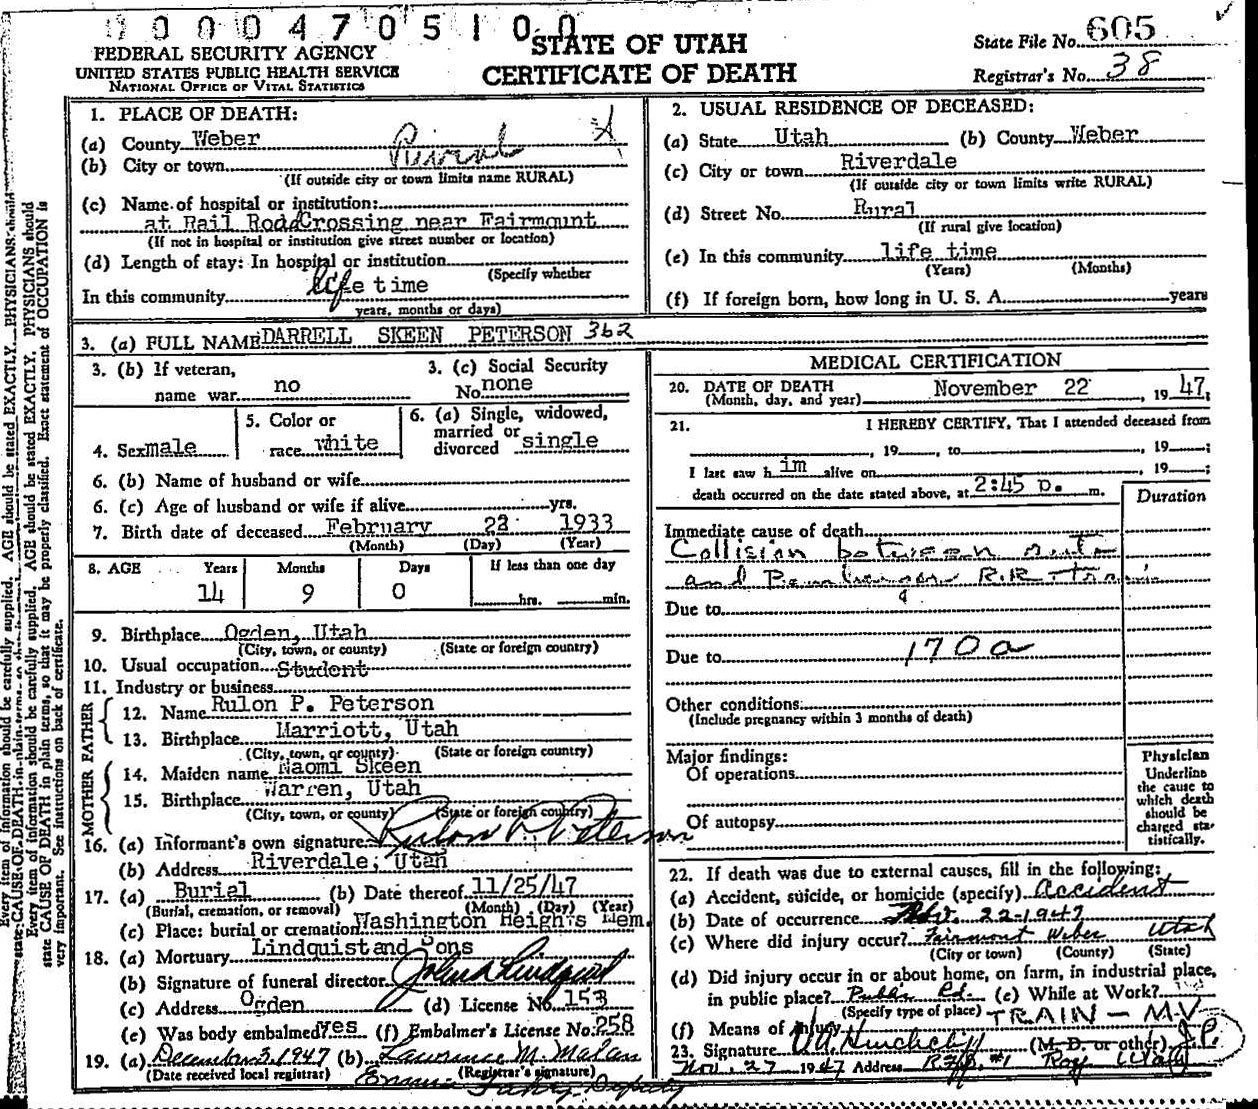 000470510 0
FEDERAL SECURITY AGENCY
UNITED STATES PUBLIC HEALTH SERVICE
NATIONAL OFFICE OF VITAL STATISTICS
STATE OF UTAH
CERTIFICATE OF DEATH
State File No. 605
Registrar's No. 38
1. PLACE OF DEATH:
(a) County Weber
(b) City or town Rural
(If outside city or town limits name RURAL)
(c) Name of hospital or institution:
at Rail Road Crossing near Fairmount
(If not in hospital or institution give street number or location)
(d) Length of stay: In hospital or institution
(Specify whether
In this community life time
years, months or days)
2. USUAL RESIDENCE OF DECEASED:
(a) State Utah (b) County Weber
(c) City or town Riverdale
(If outside city or town limits write RURAL)
(d) Street No. Rural
(If rural give location)
(e) In this community life time
(Years) (Months)
(f) If foreign born, how long in U. S. A. years
3. (a) FULL NAME DARRELL SKEEN PETERSON 362
3. (b) If veteran,
name war no
3. (c) Social Security
No. none
4. Sex male
5. Color or
race white
6. (a) Single, widowed,
married or
divorced single
6. (b) Name of husband or wife
6. (c) Age of husband or wife if alive yrs.
7. Birth date of deceased February 22 1933
(Month) (Day) (Year)
8. AGE Years Months Days If less than one day
14 9 0 hrs. min.
9. Birthplace Ogden, Utah
(City, town, or county) (State or foreign country)
10. Usual occupation Student
11. Industry or business
FATHER
12. Name Rulon P. Peterson
13. Birthplace Marriott, Utah
(City, town, or county) (State or foreign country)
MOTHER
14. Maiden name Naomi Skeen
15. Birthplace Warren, Utah
(City, town, or county) (State or foreign country)
16. (a) Informant's own signature Rulon P. Peterson
(b) Address Riverdale, Utah
17. (a) Burial (b) Date thereof 11/25/47
(Burial, cremation, or removal) (Month) (Day) (Year)
(c) Place: burial or cremation Washington Heights Mem.
18. (a) Mortuary Lindquist and Sons
(b) Signature of funeral director John A Lindquist
(c) Address Ogden (d) License No. 153
(e) Was body embalmed? yes (f) Embalmer's License No. 258
19. (a) December 3, 1947 (b) Lawrence M. Malan
(Date received local registrar) (Registrar's signature)
Deputy
MEDICAL CERTIFICATION
20. DATE OF DEATH
(Month, day, and year) November 22, 1947.
21. I HEREBY CERTIFY, That I attended deceased from
, 19 , to , 19 ;
I last saw h im alive on , 19 ;
death occurred on the date stated above, at 2:45 p. m.
Duration
Immediate cause of death
Collision between auto
and Bamberger R.R. Train
Due to
Due to 170a
Other conditions:
(Include pregnancy within 3 months of death)
Major findings:
Of operations
Of autopsy
Physician
Underline
the cause to
which death
should be
charged sta-
tistically.
22. If death was due to external causes, fill in the following:
(a) Accident, suicide, or homicide (specify) Accident
(b) Date of occurrence Nov. 22-1947
(c) Where did injury occur? Fairmont Weber Utah
(City or town) (County) (State)
(d) Did injury occur in or about home, on farm, in industrial place,
in public place? Public Rd. (e) While at Work?
(Specify type of place)
(f) Means of injury TRAIN - M.V.
23. Signature (M. D. or other) J.P.
Nov. 27 1947 Address R.F.D. #1 Roy Utah
Every item of information should be carefully supplied. AGE should be stated EXACTLY. PHYSICIANS should
state CAUSE OF DEATH in plain terms, so that it may be properly classified. Exact statement of OCCUPATION is
very important. See instructions on back of certificate.